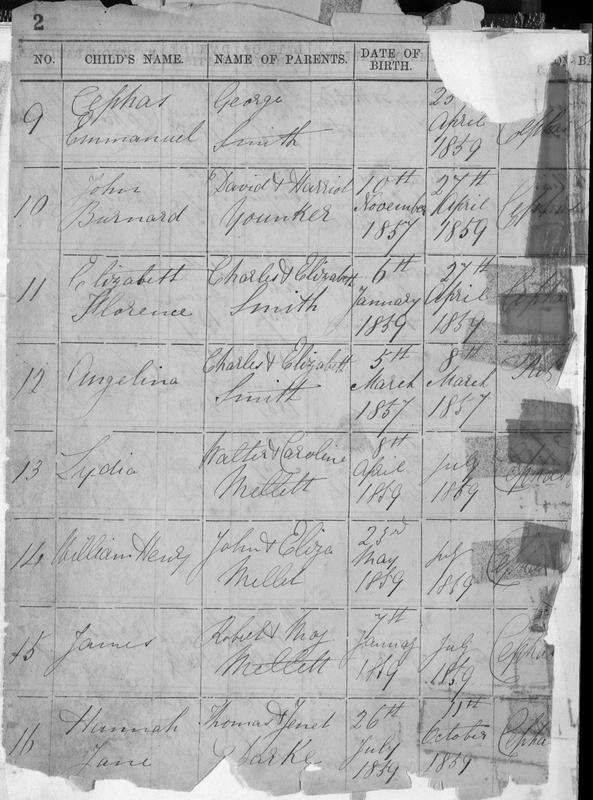 2
NO. CHILD'S NAME. NAME OF PARENTS. DATE OF BIRTH.
9 Cephas George 25
Emmanuel Smith April
1859
10 John David & Harriot 10th 27th
Burnard Younker November April
1857 1859
11 Elizabeth Charles & Elizabeth 6th 27th
Florence Smith January April
1859 1859
12 Angelina Charles & Elizabeth 5th 8th
Smith March March
1857 1857
13 Lydia Walter & Caroline 8th
Mellett April July
1859 1859 Cephas
14 William Henry John & Eliza 23rd
Millet May July
1859 1859
15 James Robert & May 7th
Mellett January July
1859 1859 Cephas
16 Hannah Thomas & Jenet 26th
Jane Clarke July October Cepha
1859 1859